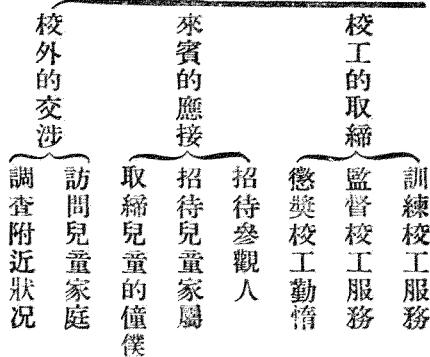 校工的取締
訓練校工服務
監督校工服務
懲獎校工勤惰
來賓的應接
招待參觀人
招待兒童家屬
取締兒童的僮僕
校外的交涉
訪問兒童家庭
調查附近狀况